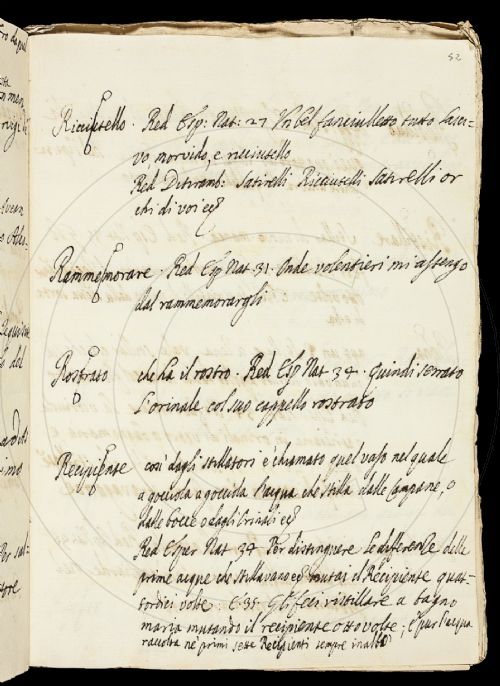 52
Ricciutello. Red Esp: Nat: 27 Un bel fanciulletto tutto lasci-
vo, morvido, e ricciutello
Red Ditiramb: Satirelli Ricciutelli Satirelli or
chi di voi
Rammemorare. Red Esp Nat 31. Onde volentieri mi astengo
dal rammemorargli
Rostrato che ha il rostro. Red Esp Nat 34. quindi serrato
l'orinale col suo cappello rostrato
Recipiente così dagli stillatori è chiamato quel vaso nel quale
a gocciola a gocciola l'acqua che stilla dalle Campane, o
dalle bocce o dagli
Red Esper Nat 34 Per distinguere le differenze delle
prime acque che stillavano mutai il Recipiente quat-
tordici volte: E 35 Gli feci ristillare a bagno
maria mutando il recipiente otto volte; e pur l'acqua
raccolta ne primi sette Recipienti sempre inalbò